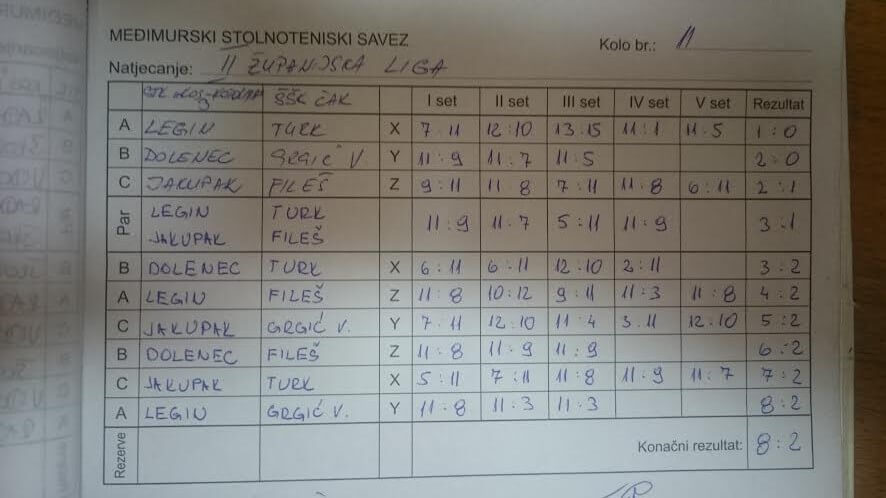 MEĐIMURSKI STOLNOTENISKI SAVEZ
Kolo br.: 11
Natjecanje: II ŽUPANIJSKA LIGA
STK ŠŠK ČAK I set II set III set IV set V set Rezultat
A LEGIN TURK X 7 11 12:10 13:15 11:1 11:5 1:0
B DOLENEC GRGIĆ V Y 11:9 11:7 11:5 2:0
C JAKUPAK FILEŠ Z 9:11 11:8 7:11 11:8 6:11 2:1
Par LEGIN TURK 11:9 11:7 5:11 11:9 3:1
JAKUPAK FILEŠ
B DOLENEC TURK X 6:11 6:11 12:10 2:11 3:2
A LEGIN FILEŠ Z 11:8 10:12 9:11 11:3 11:8 4:2
C JAKUPAK GRGIĆ V. Y 7:11 12:10 11:4 3:11 12:10 5:2
B DOLENEC FILEŠ Z 11:8 11:9 11:9 6:2
C JAKUPAK TURK X 5:11 7:11 11:8 11:9 11:7 7:2
A LEGIN GRGIĆ V. Y 11:8 11:3 11:3 8:2
Rezerve Konačni rezultat: 8:2